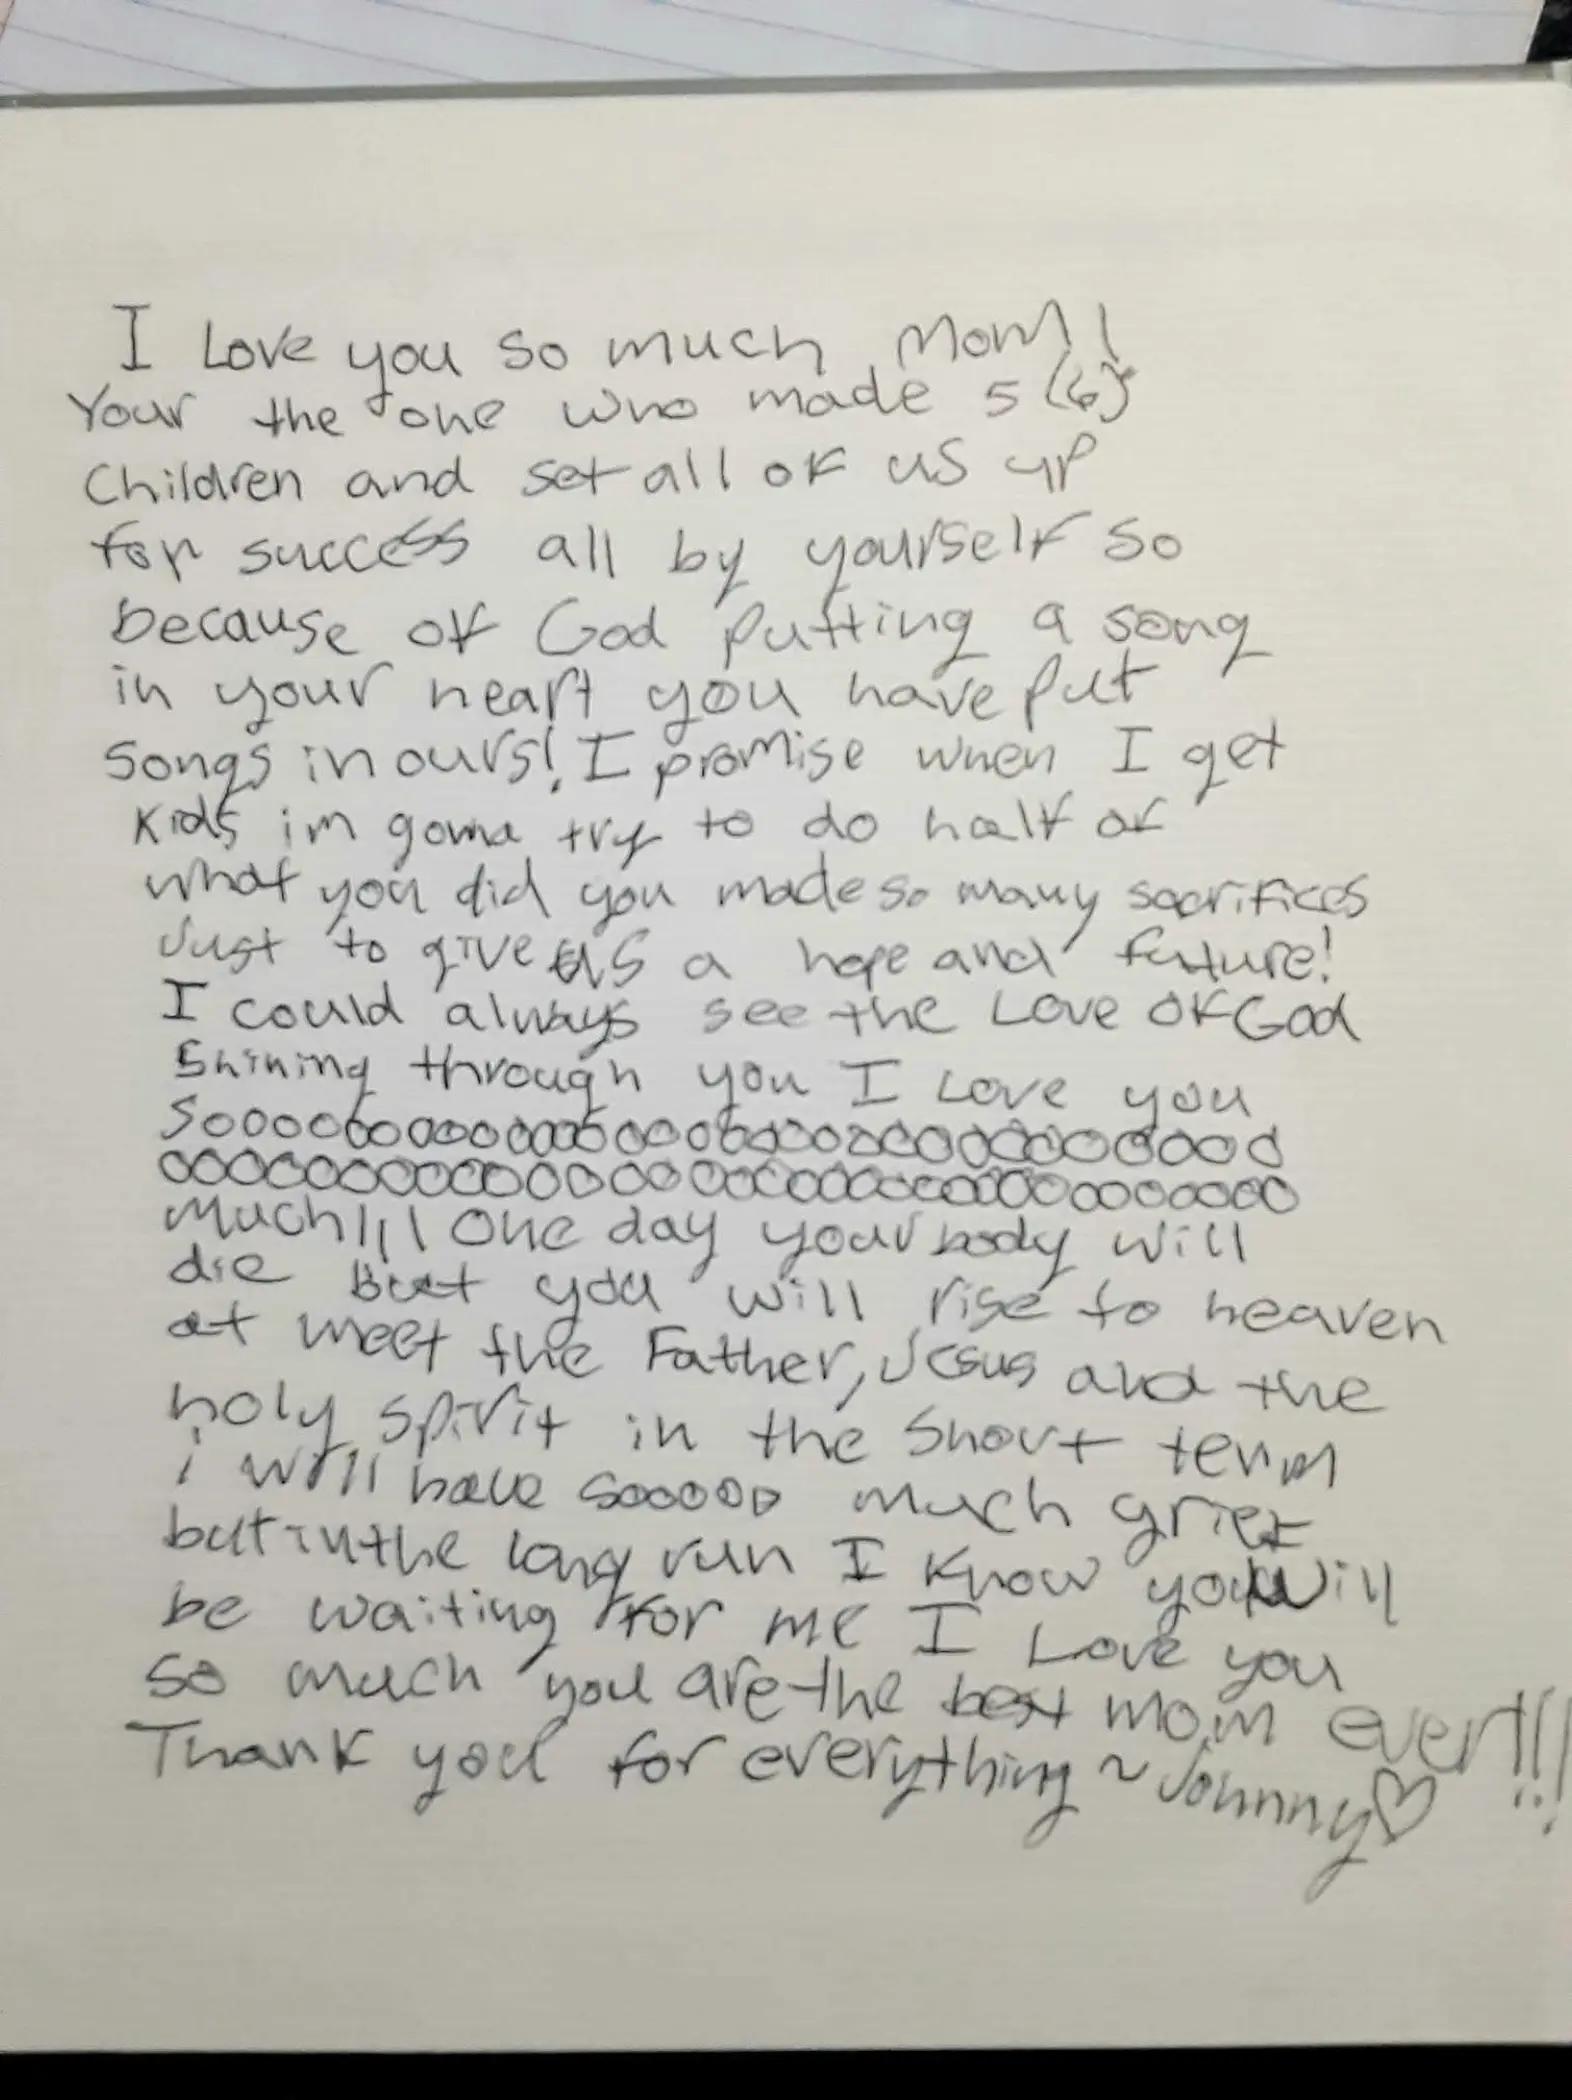 I Love you so much Mom!
Your the one who made 5 (6)
Children and set all of us up
for success all by yourself so
because of God putting a song
in your heart you have put
songs in ours! I promise when I get
kids im gonna try to do half of
what you did you made so many sacrifices
Just to give us a hope and future!
I could always see the Love of God
Shining through you I Love you
Sooooooooooooooooooooooooooooooooo
oooooooooooooooooooooooooooooooooo
Much!!! One day your body will
die But you will rise to heaven
at meet the Father, Jesus and the
holy spirit in the short term
i will have sooooo much grief
but in the long run I know you will
be waiting for me I Love you
so much you are the best mom ever!!!
Thank you for everything ~ Johnny♡